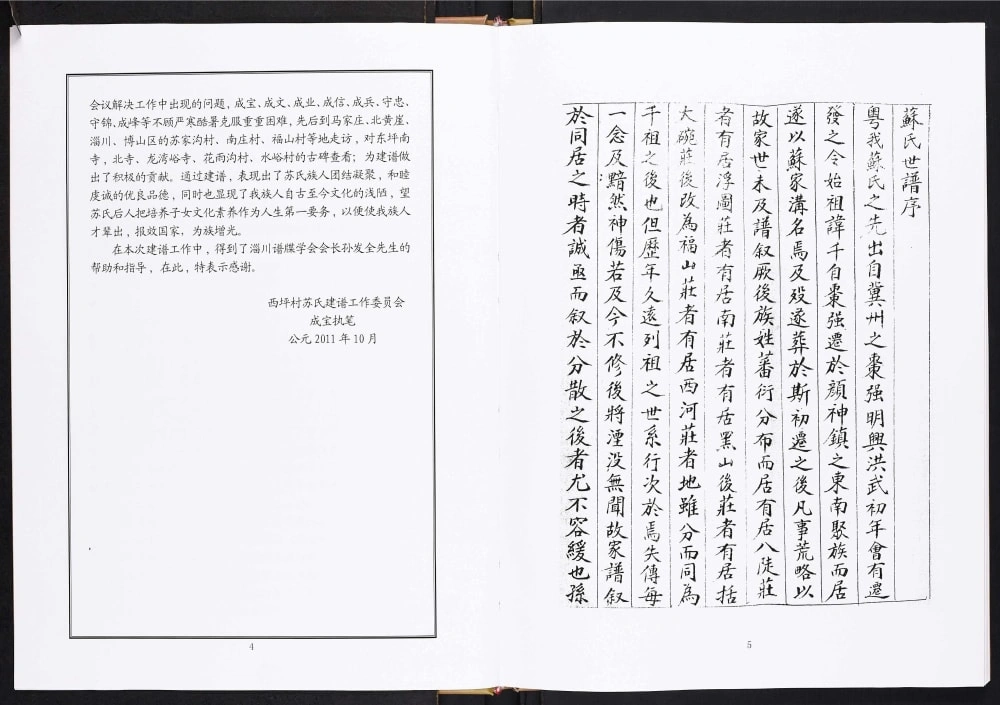 会议解决工作中出现的问题，成宝、成文、成业、成信、成兵、守忠、
守锦、成峰等不顾严寒酷暑克服重重困难，先后到马家庄、北黄崖、
淄川、博山区的苏家沟村、南庄村、福山村等地走访，对东坪南
寺，北寺、龙湾峪寺、花雨沟村、水峪村的古碑查看；为建谱做
出了积极的贡献。通过建谱，表现出了苏氏族人团结凝聚，和睦
虔诚的优良品德，同时也显现了我族人自古至今文化的浅陋，望
苏氏后人把培养子女文化素养作为人生第一要务，以便使我族人
才辈出，报效国家，为族增光。
在本次建谱工作中，得到了淄川谱牒学会会长孙发全先生的
帮助和指导，在此，特表示感谢。
西坪村苏氏建谱工作委员会
成宝执笔
公元 2011 年 10 月
4
蘇氏世譜序
粵我蘇氏之先出自冀州之棗强明興洪武初年會有遷
發之令始祖諱千自棗强遷於顏神鎮之東南聚族而居
遂以蘇家溝名焉及殁遂葬於斯初遷之後凡事荒略以
故家世未及譜叙厥後族姓蕃衍分布而居有居八陡莊
者有居浮圖莊者有居南莊者有居黑山後莊者有居括
大碗莊後改為福山莊者有居西河莊者地雖分而同為
千祖之後也但歷年久遠列祖之世系行次於焉失傳每
一念及黯然神傷若及今不修後將湮没無聞故家譜叙
於同居之時者誠亟而叙於分散之後者尤不容緩也孫
5